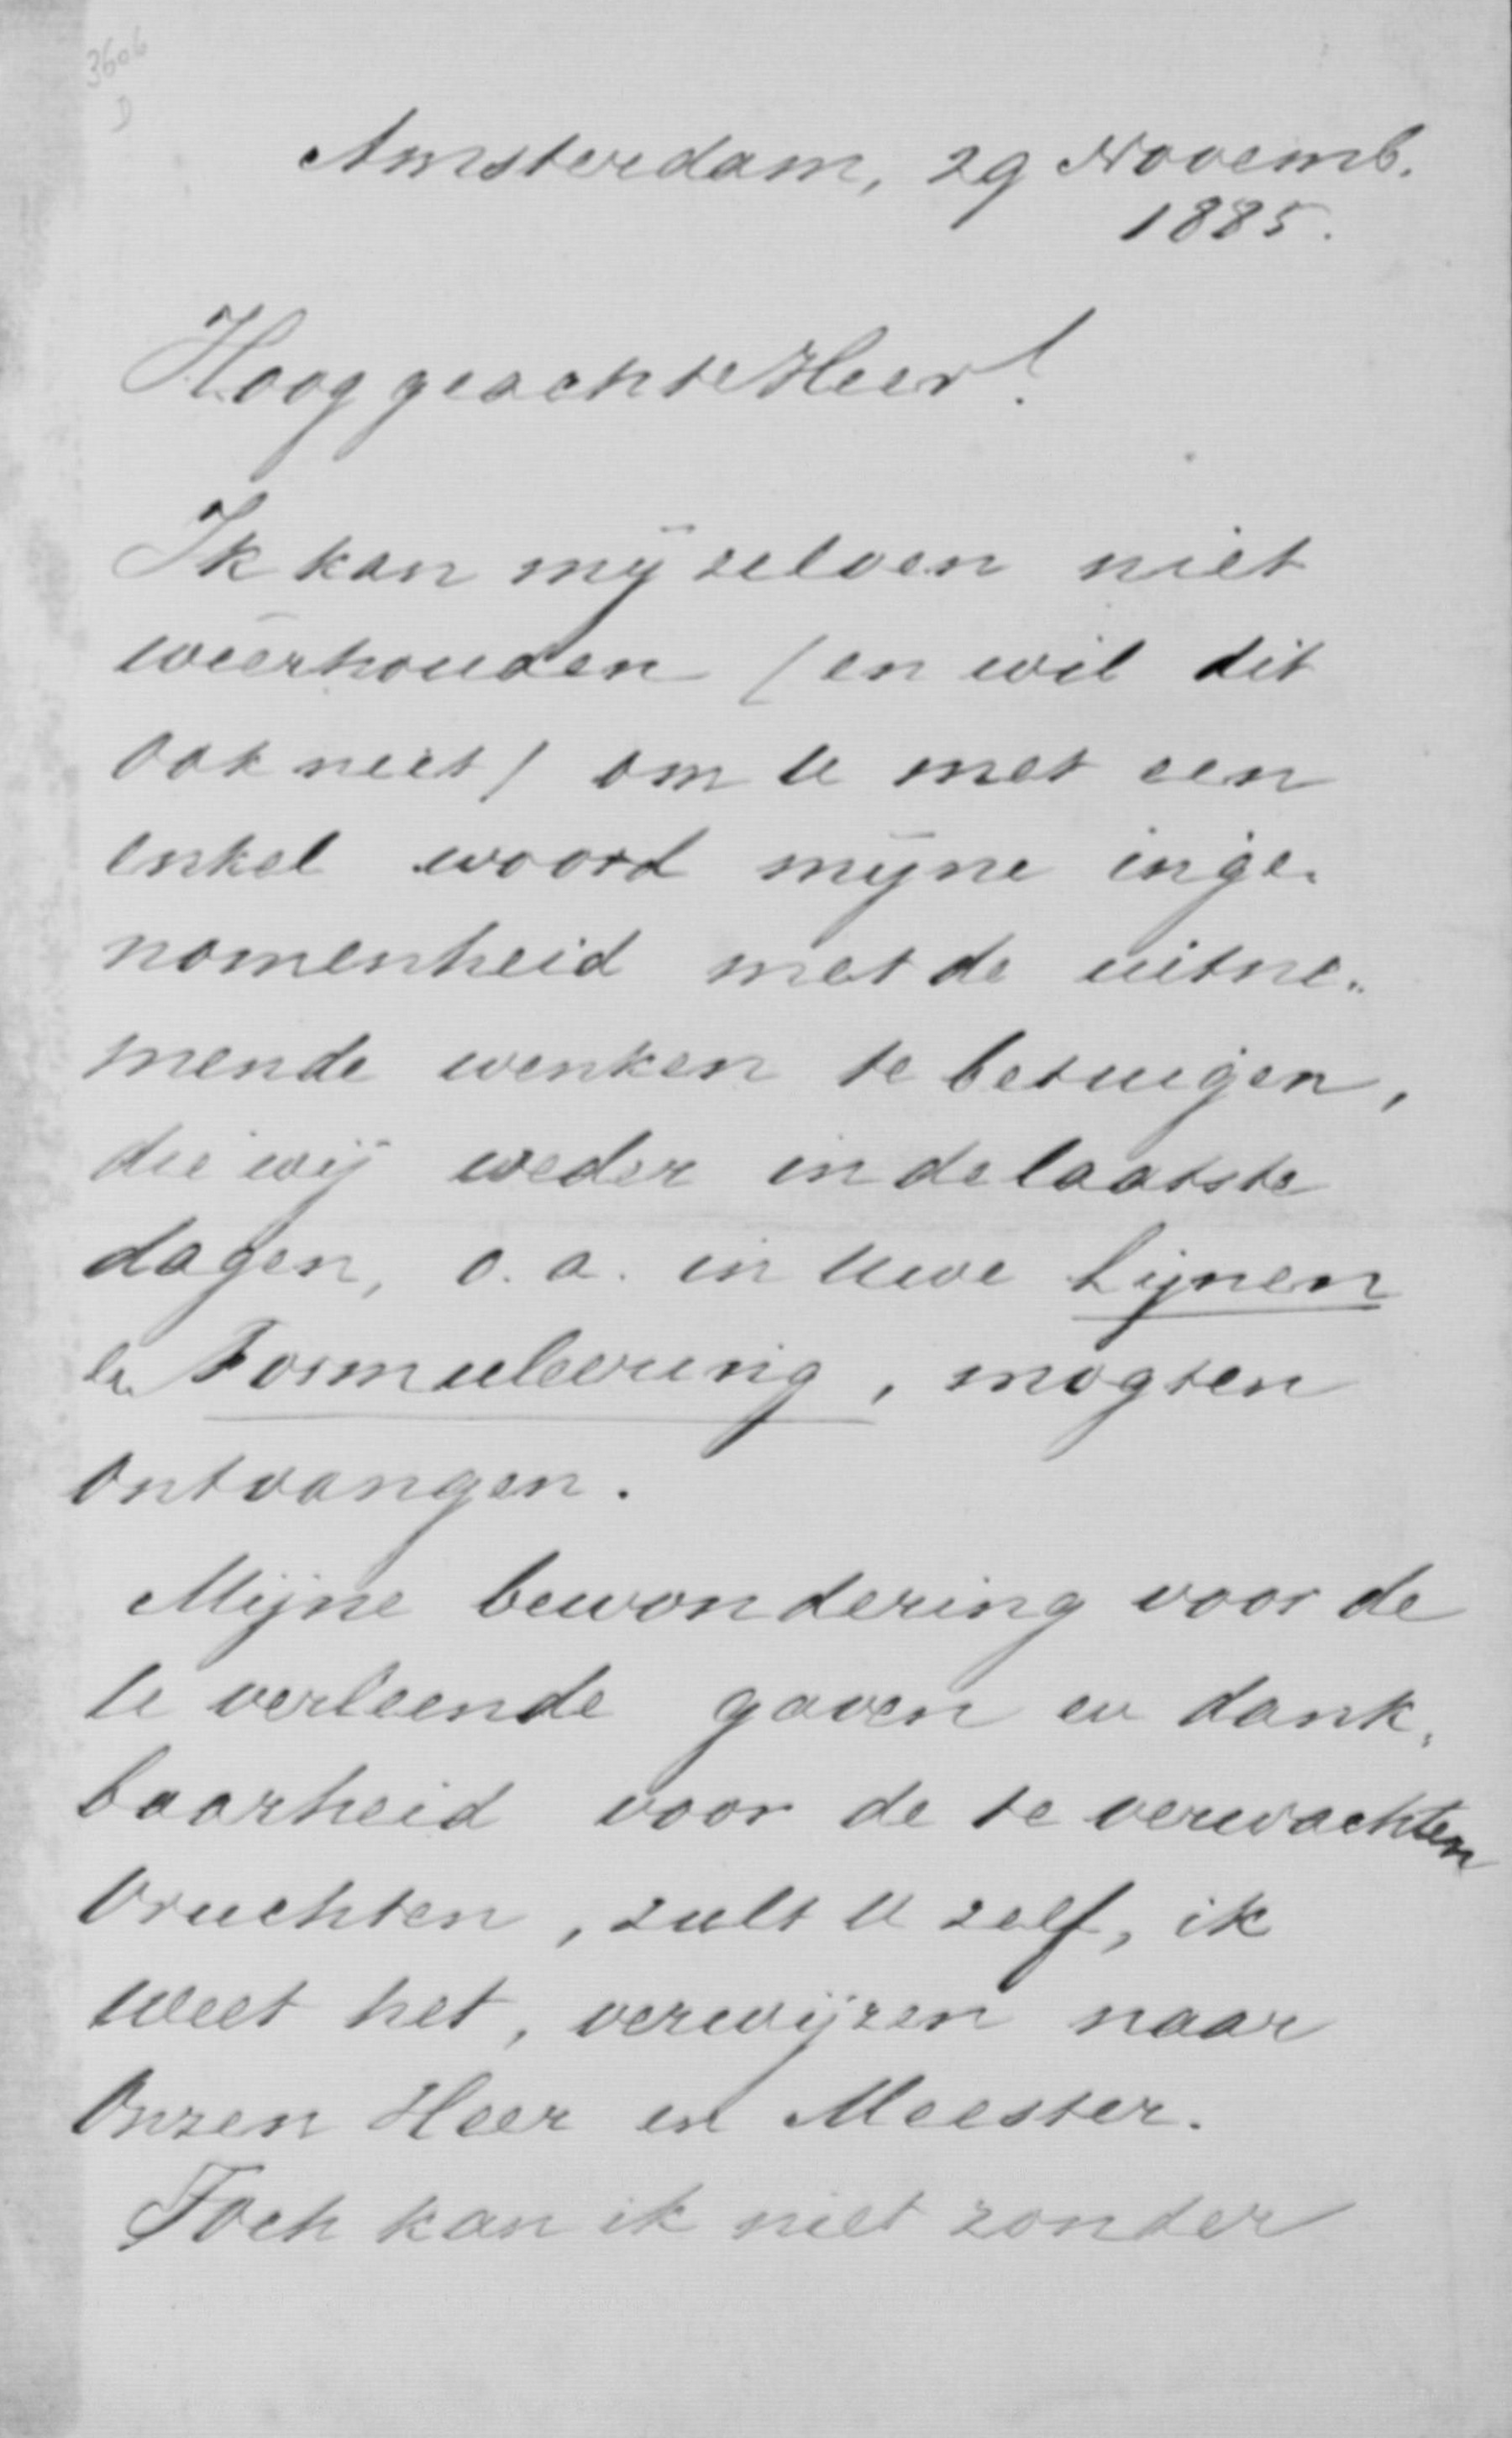 3606
D
Amsterdam, 29 Novemb.
1885.
Hooggeachte Heer!
Ik kan mij zelven niet
weerhouden (en wil dit
ook niet) om U met een
enkel woord mijne inge-
nomenheid met de uitne-
mende wenken te betuigen,
die wij weder in de laatste
dagen, o.a. in Uwe Lijnen
en Formuleering, mogten
ontvangen.
Mijne bewondering voor de
U verleende gaven en dank-
baarheid voor de te verwachten
vruchten, zult U zelf, ik
weet het, verwijzen naar
Onzen Heer en Meester.
Toch kan ik niet zonder